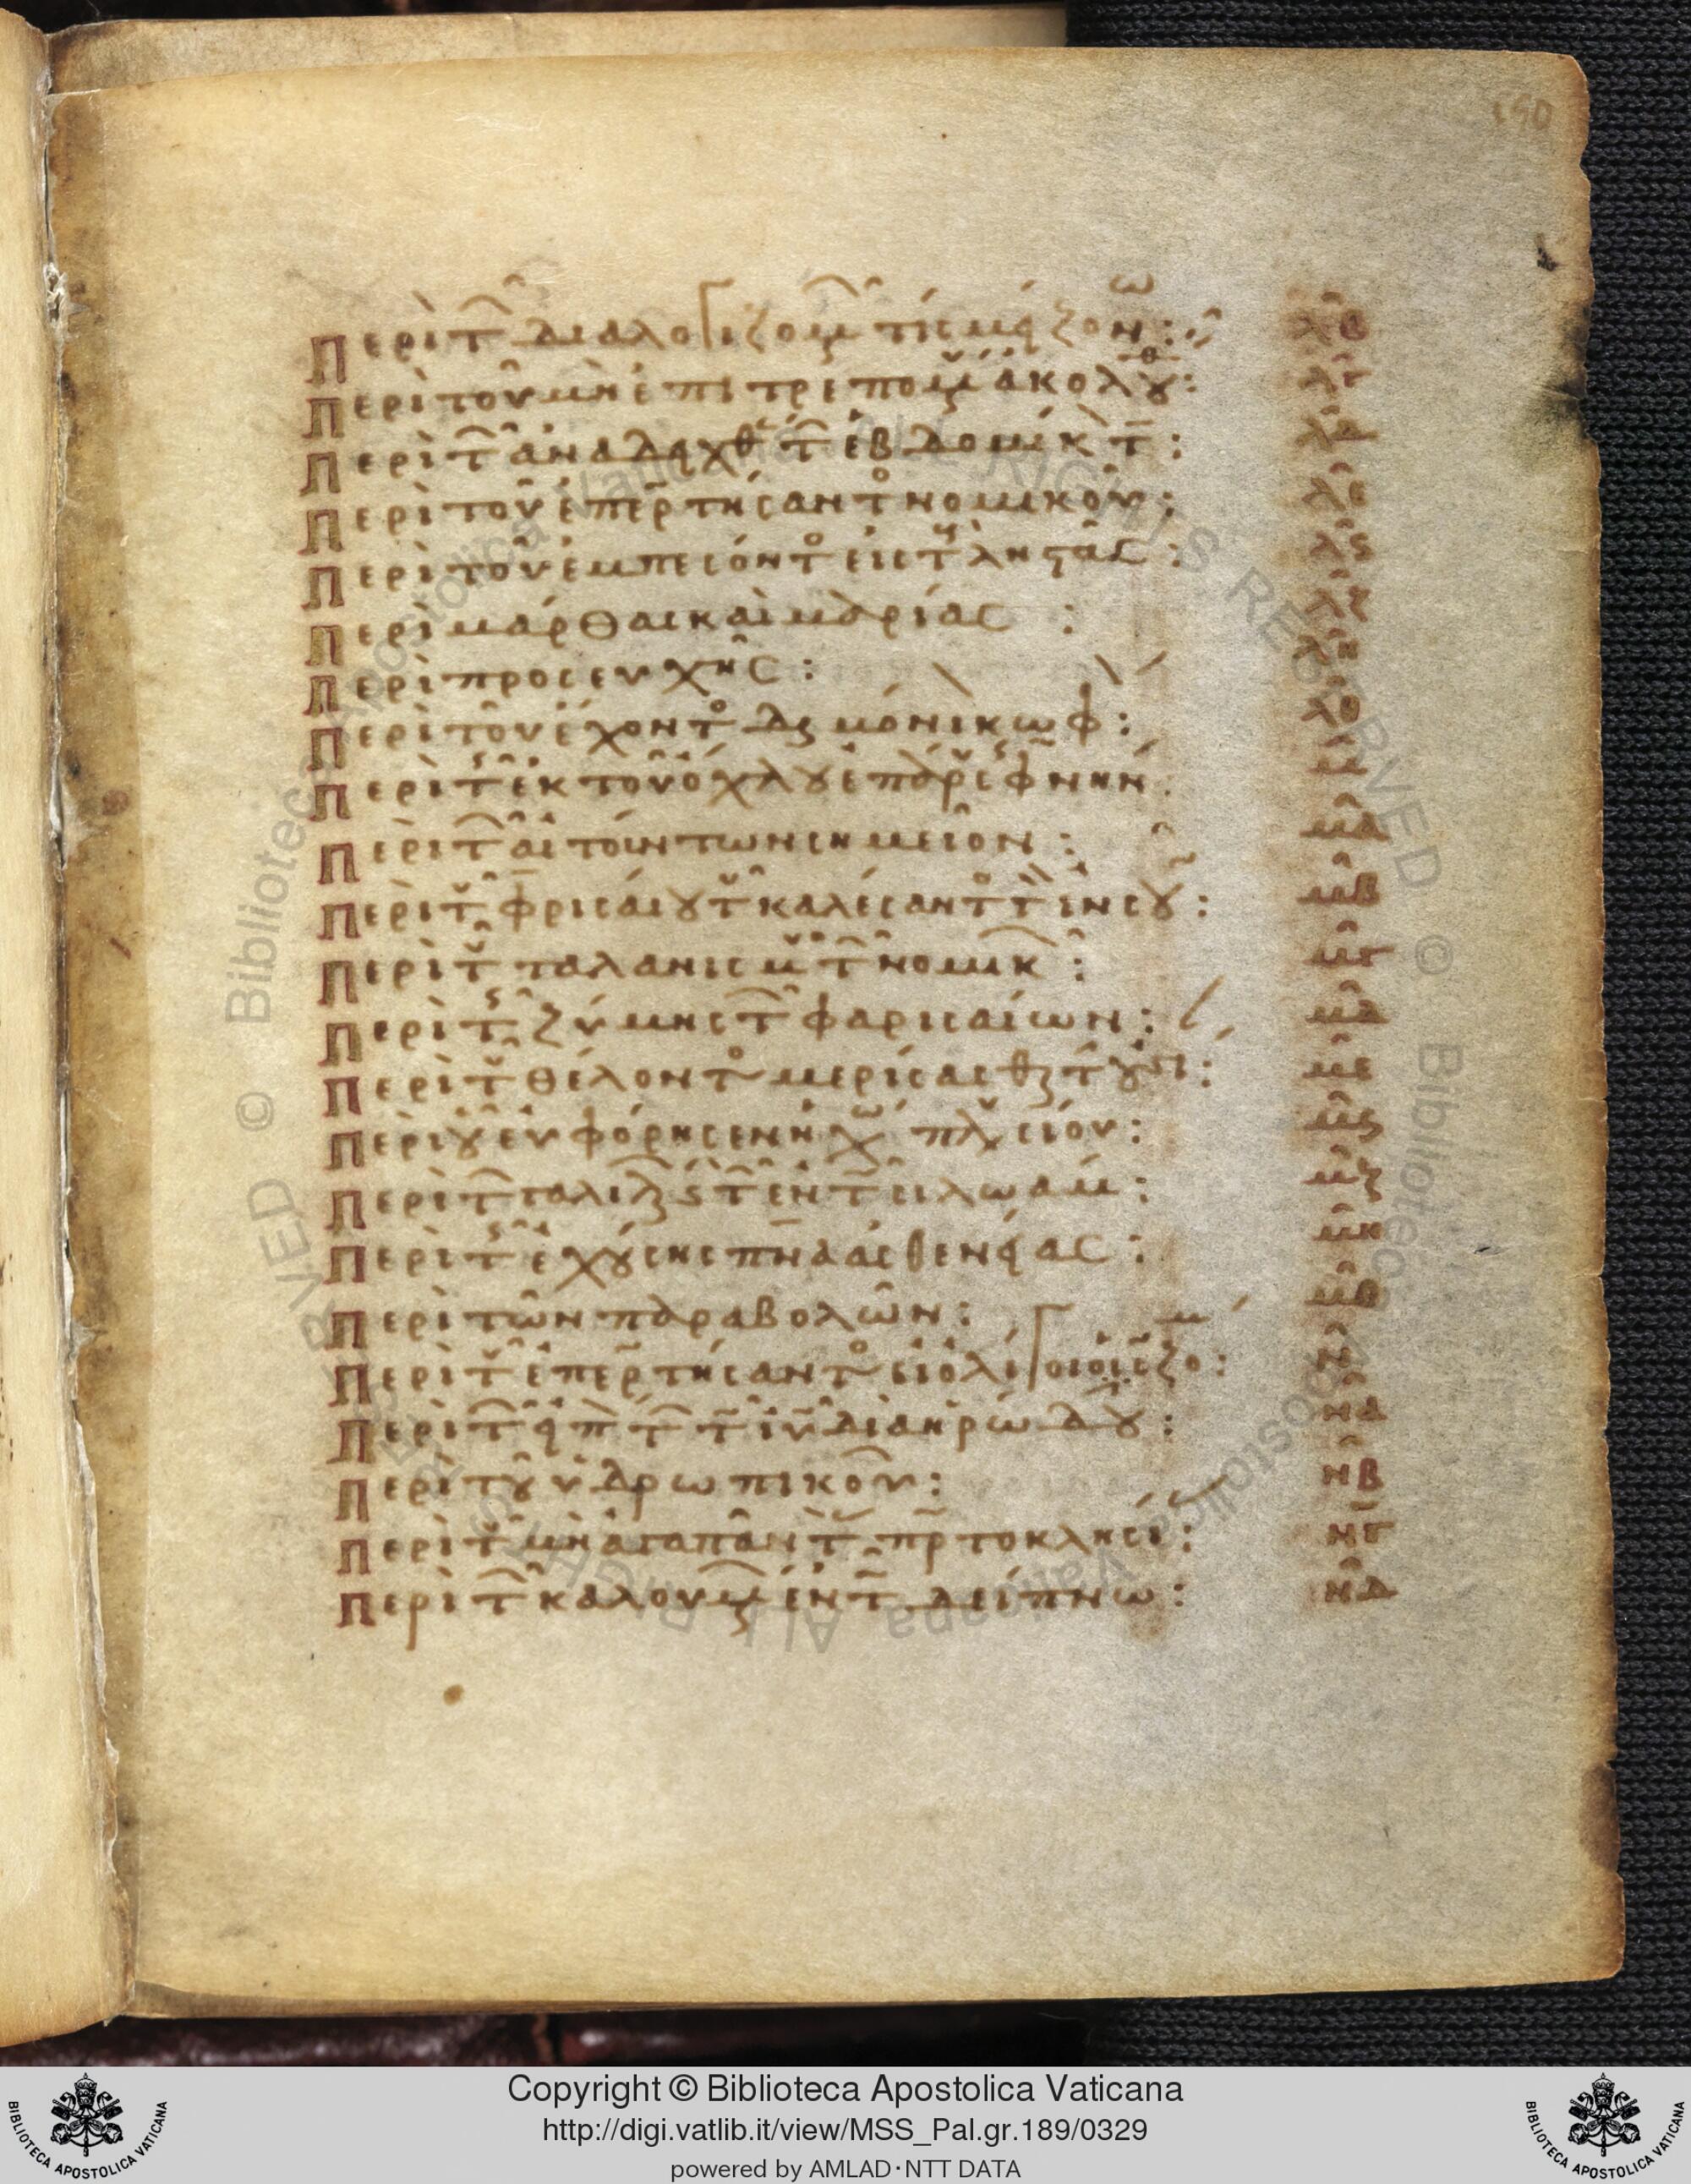 190
Περὶ τ̑ διαλογιζομ τίς μείζων: λβ
Περὶ τοῦ μὴ ἐπιτρεπομ ἀκολουθ: λγ
Περὶ τ̑ ἀναδειχθ τ̑ ἑβδομήκτ: λδ
Περὶ τοῦ ἐπερτήσαντο νομικοῦ: λε
Περὶ τοῦ ἐμπεσόντο εἰς τ ληστάς: λς
Περὶ Μάρθας καὶ Μαρίας: λζ
Περὶ προσευχῆς: λη
Περὶ τοῦ ἔχοντο δαιμόνι κωφ: λθ
Περὶ τ̑ ἐκ τοῦ ὄχλου ἐπάρ φνήν μ
Περὶ τ̑ αἰτούντων σημεῖον: μα
Περὶ τ̑ φρισαίου τ̑ καλέσαντο τ ιν μβ
Περὶ τ̑ ταλανισμ τ̑ νομικ: μγ
Περὶ τ̑ ζύμης τ̑ φαρισαίων: μδ
Περὶ τ̑ θέλοντο μερίσας με
Περὶ οὗ εὐφόρησεν ἡ χώ πλ μς
Περὶ τ̑ γαλιλ τ̑ ἐν τ̑ σιλωάμ: μζ
Περὶ τ̑ ἐχούσης πνα ἀσθενείας: μη
Περὶ τῶν παραβολῶν: μθ
Περὶ τ̑ ἐπερτήσαντο εἰ ὀλίγοι οἱ σζομ: ν
Περὶ τ̑ εἰπ τ̑ τ ιυ διὰ ηρώδου: να
Περὶ τοῦ ὑδρωπικοῦ: νβ
Περὶ τ̑ μὴ ἀγαπᾶν τ πρτοκλησι: νγ
Περὶ τ̑ καλουμ ἐν τ̑ δείπνω: νδ
Copyright © Biblioteca Apostolica Vaticana
http://digi.vatlib.it/view/MSS_Pal.gr.189/0329
powered by AMLAD·NTT DATA
BIBLIOTECA APOSTOLICA VATICANA
BIBLIOTECA APOSTOLICA VATICANA